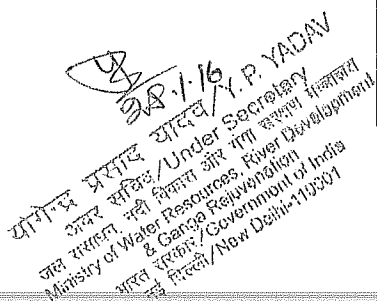 28.1.16
योगेन्द्र प्रसाद यादव/Y. P. YADAV
अवर सचिव/Under Secretary
जल संसाधन, नदी विकास और गंगा संरक्षण मंत्रालय
Ministry of Water Resources, River Development
& Ganga Rejuvenation
भारत सरकार/Government of India
नई दिल्ली/New Delhi-110001